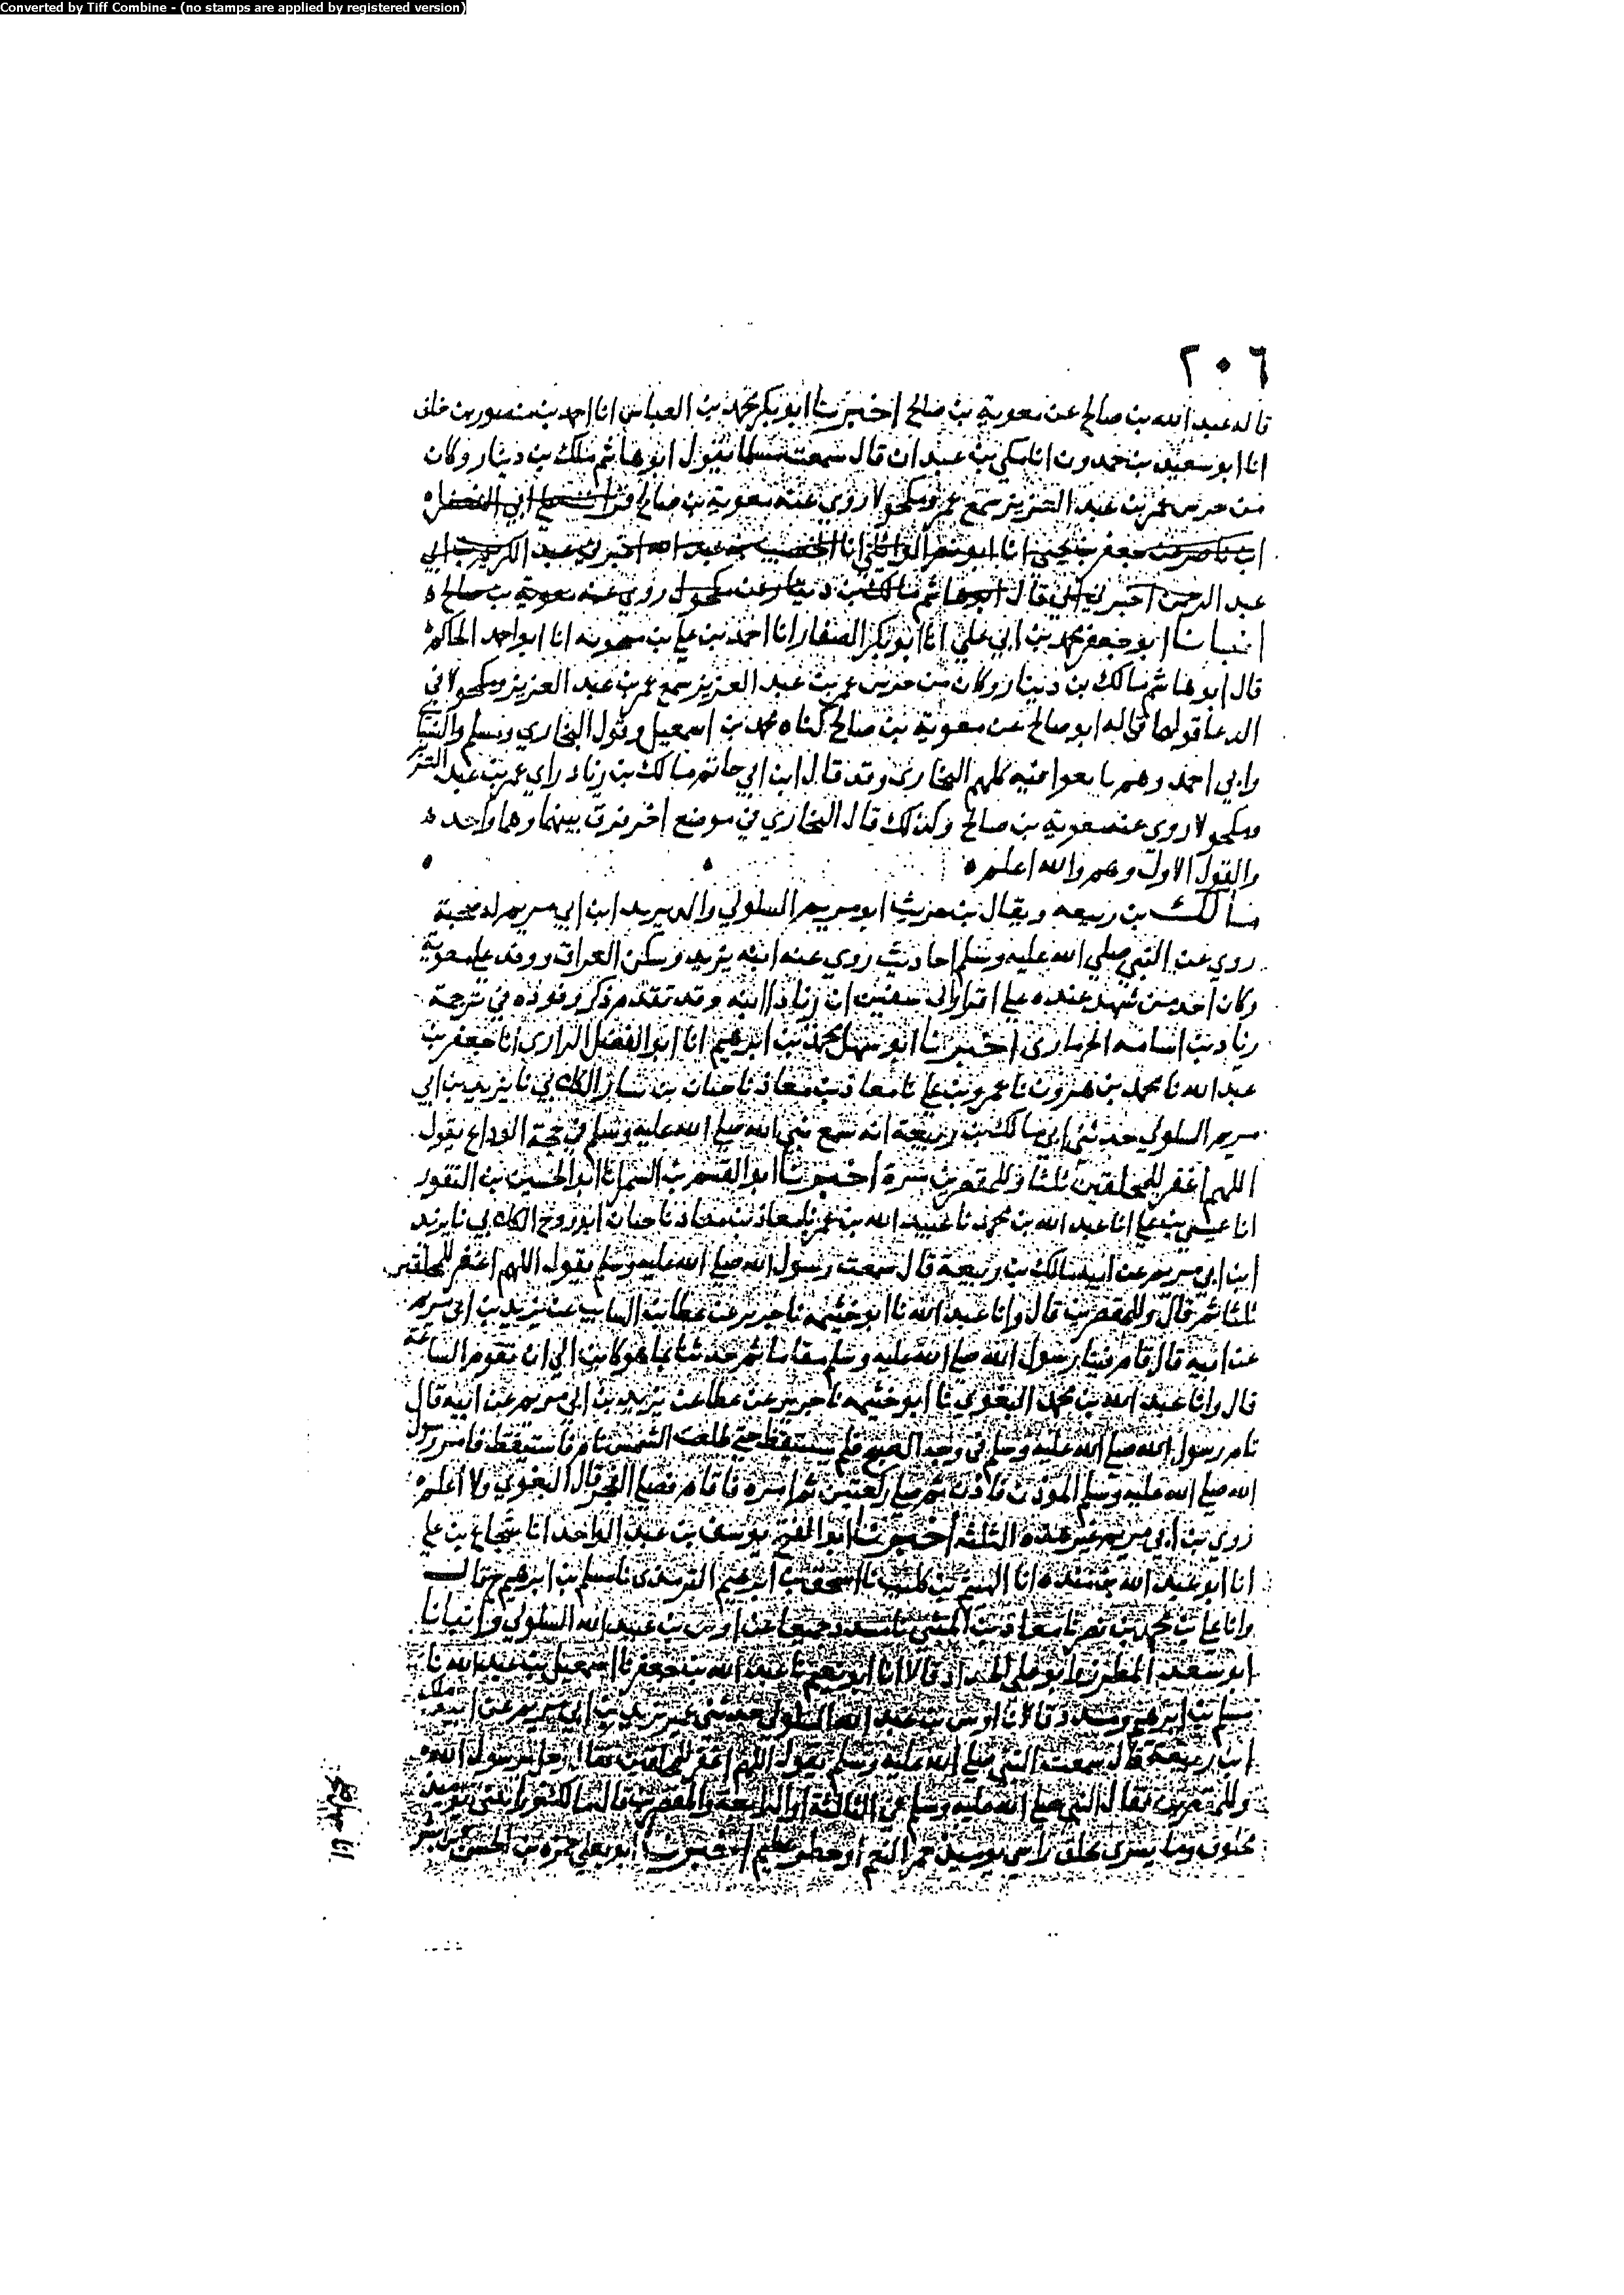 Converted by Tiff Combine - (no stamps are applied by registered version)
٢٠٦
قاله عبد الله بن صالح عن معوية بن صالح اخبرنا ابو بكر محمد بن العباس انا احمد بن منصور بن خلف
انا ابو سعيد بن حمدون انا مكي بن عبدان قال سمعت مسلما يقول ابو هاشم ملك بن دينار وكان
من حرس عمر بن عبد العزيز سمع عمر ومكحولا روي عنه معوية بن صالح قرات علي ابي الفضل
ابن ناصر عن جعفر بن يحيى انا ابو نصر الوائلي انا الخصيب بن عبد الله اخبرني عبد الكريم بن ابي
عبد الرحمن اخبرني ابي قال ابو هاشم مالك بن دينار عن مكحول روي عنه معوية بن صالح
انبانا ابو جعفر محمد بن ابي علي انا ابو بكر الصفار انا احمد بن علي بن منجويه انا ابو احمد الحاكم
قال ابو هاشم مالك بن دينار وكان من حرس عمر بن عبد العزيز سمع عمر بن عبد العزيز ومكحولا في
الدعا قولهما قاله ابو صالح عن معوية بن صالح كناه محمد بن اسمعيل وقول البخاري ومسلم والنسائي
وابي احمد وهم تابعوا فيه كلهم البخاري وقد قال ابن ابي حاتم مالك بن زياد راي عمر بن عبد العزيز
ومكحولا روى عنه معوية بن صالح وكذلك قال البخاري في موضع اخر فرق بينهما وهما واحد
والقول الاول وهم والله اعلم
مالك بن ربيعه ويقال بن حريث ابو مريم السلولي والد يريد ابن ابي مريم له صحبة
روي عن النبي صلي الله عليه وسلم احاديث روي عنه ابنه يزيد وسكن العراق ووفد علي معوية
وكان احد من شهد عنده علي اقرار ابي سفين ان زيادا ابنه وقد تقدم ذكر وفوده في ترجمة
زياد بن اسامه الحرمازى اخبرنا ابو سهل محمد بن ابرهيم انا ابو الفضل الرازي انا جعفر بن
عبد الله نا محمد بن هرون نا عمرو بن علي نا معاذ بن معاذ نا حنان بن يسار الكلابي نا يزيد بن ابي
مريم السلولي حدثني ابي مالك بن ربيعة انه سمع نبي الله صلي الله عليه وسلم في حجة الوداع يقول
اللهم اغفر للمحلقين ثلثا وللمقصرين مرة اخبرنا ابو القسم بن السمرقندي انا ابو الحسين بن النقور
انا عيسي بن علي انا عبد الله بن محمد نا عبيد الله بن عمر نا معاذ بن معاذ نا حنان ابو روح الكلابي نا يزيد
ابن ابي مريم عن ابيه مالك بن ربيعة قال سمعت رسول الله صلي الله عليه وسلم يقول اللهم اغفر للمحلقين
ثلثا ثم قال وللمقصرين قال وانا عبد الله نا ابو خيثمه نا جرير عن عطا بن السايب عن يزيد بن ابي مريم
عن ابيه قال قام فينا رسول الله صلي الله عليه وسلم مقاما ثم حدثنا بما هو كاين الي ان تقوم الساعة
قال وانا عبد الله بن محمد البغوي نا ابو خيثمه نا جرير عن عطا عن يزيد بن ابي مريم عن ابيه قال
نام رسول الله صلي الله عليه وسلم في وجه الصبح فلم يستيقظ حتي طلعت الشمس فاستيقظ فامر رسول
الله صلي الله عليه وسلم الموذن فاذن ثم صلي ركعتين ثم امره فاقام فصلي الفجر قال البغوي ولا اعلم
روي بن ابي مريم غير هذه الثلثة اخبرنا ابو الفتح يوسف بن عبد الواحد انا شجاع بن علي
انا ابو عبد الله بن منده انا الهيثم بن كليب نا اسحق بن ابرهيم نا مسلم بن ابرهيم ح قال
وانا علي بن محمد بن نصر نا معاذ بن المثني نا مسدد جميعا عن اوس بن عبيد الله السلولي وانبانا
ابو سعيد المطرز وابو علي الحداد قالا انا ابو نعيم نا عبد الله بن جعفر نا اسمعيل بن عبد الله نا
مسلم بن ابرهيم ومسدد قالا نا اوس بن عبد الله السلولي حدثني عمي يزيد بن ابي مريم عن ابيه ملك
ابن ربيعة قال سمعت النبي صلي الله عليه وسلم يقول اللهم اغفر للمحلقين فقال رجل يرسول الله
وللمقصرين فقال النبي صلي الله عليه وسلم في الثالثة او الرابعة والمقصرين قال مالك يومئذ
محلوق وما يسرني بحلق راسي يومئذ حمر النعم او خطر عظيم اخبرنا ابو يعلي حمزه بن الحسن